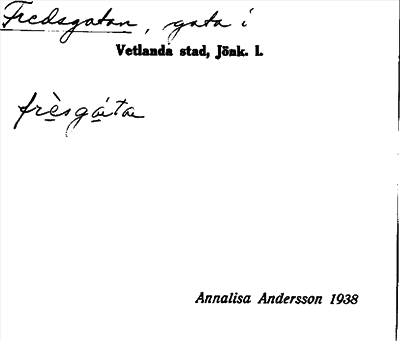 Fredsgatan, gata i
Vetlanda stad, Jönk. l.
frèsgáta
Annalisa Andersson 1938